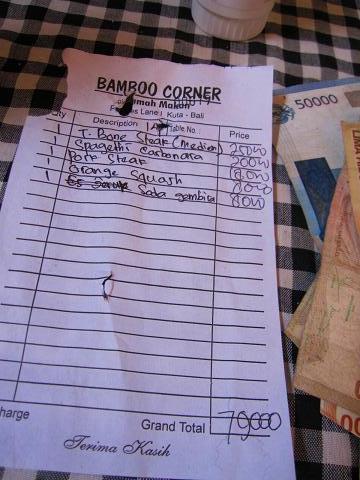 BAMBOO CORNER
Rumah Makan
Lane I Kuta - Bali
Qty Description Table No.: Price
1 T. Bone Steak (medium) 25000
1 Spagethi Carbonara 20000
1 Pork Steak 18000
1 Orange Squash 8000
1 Soda gembira 8000
harge
Grand Total 79000
Terima Kasih
50000